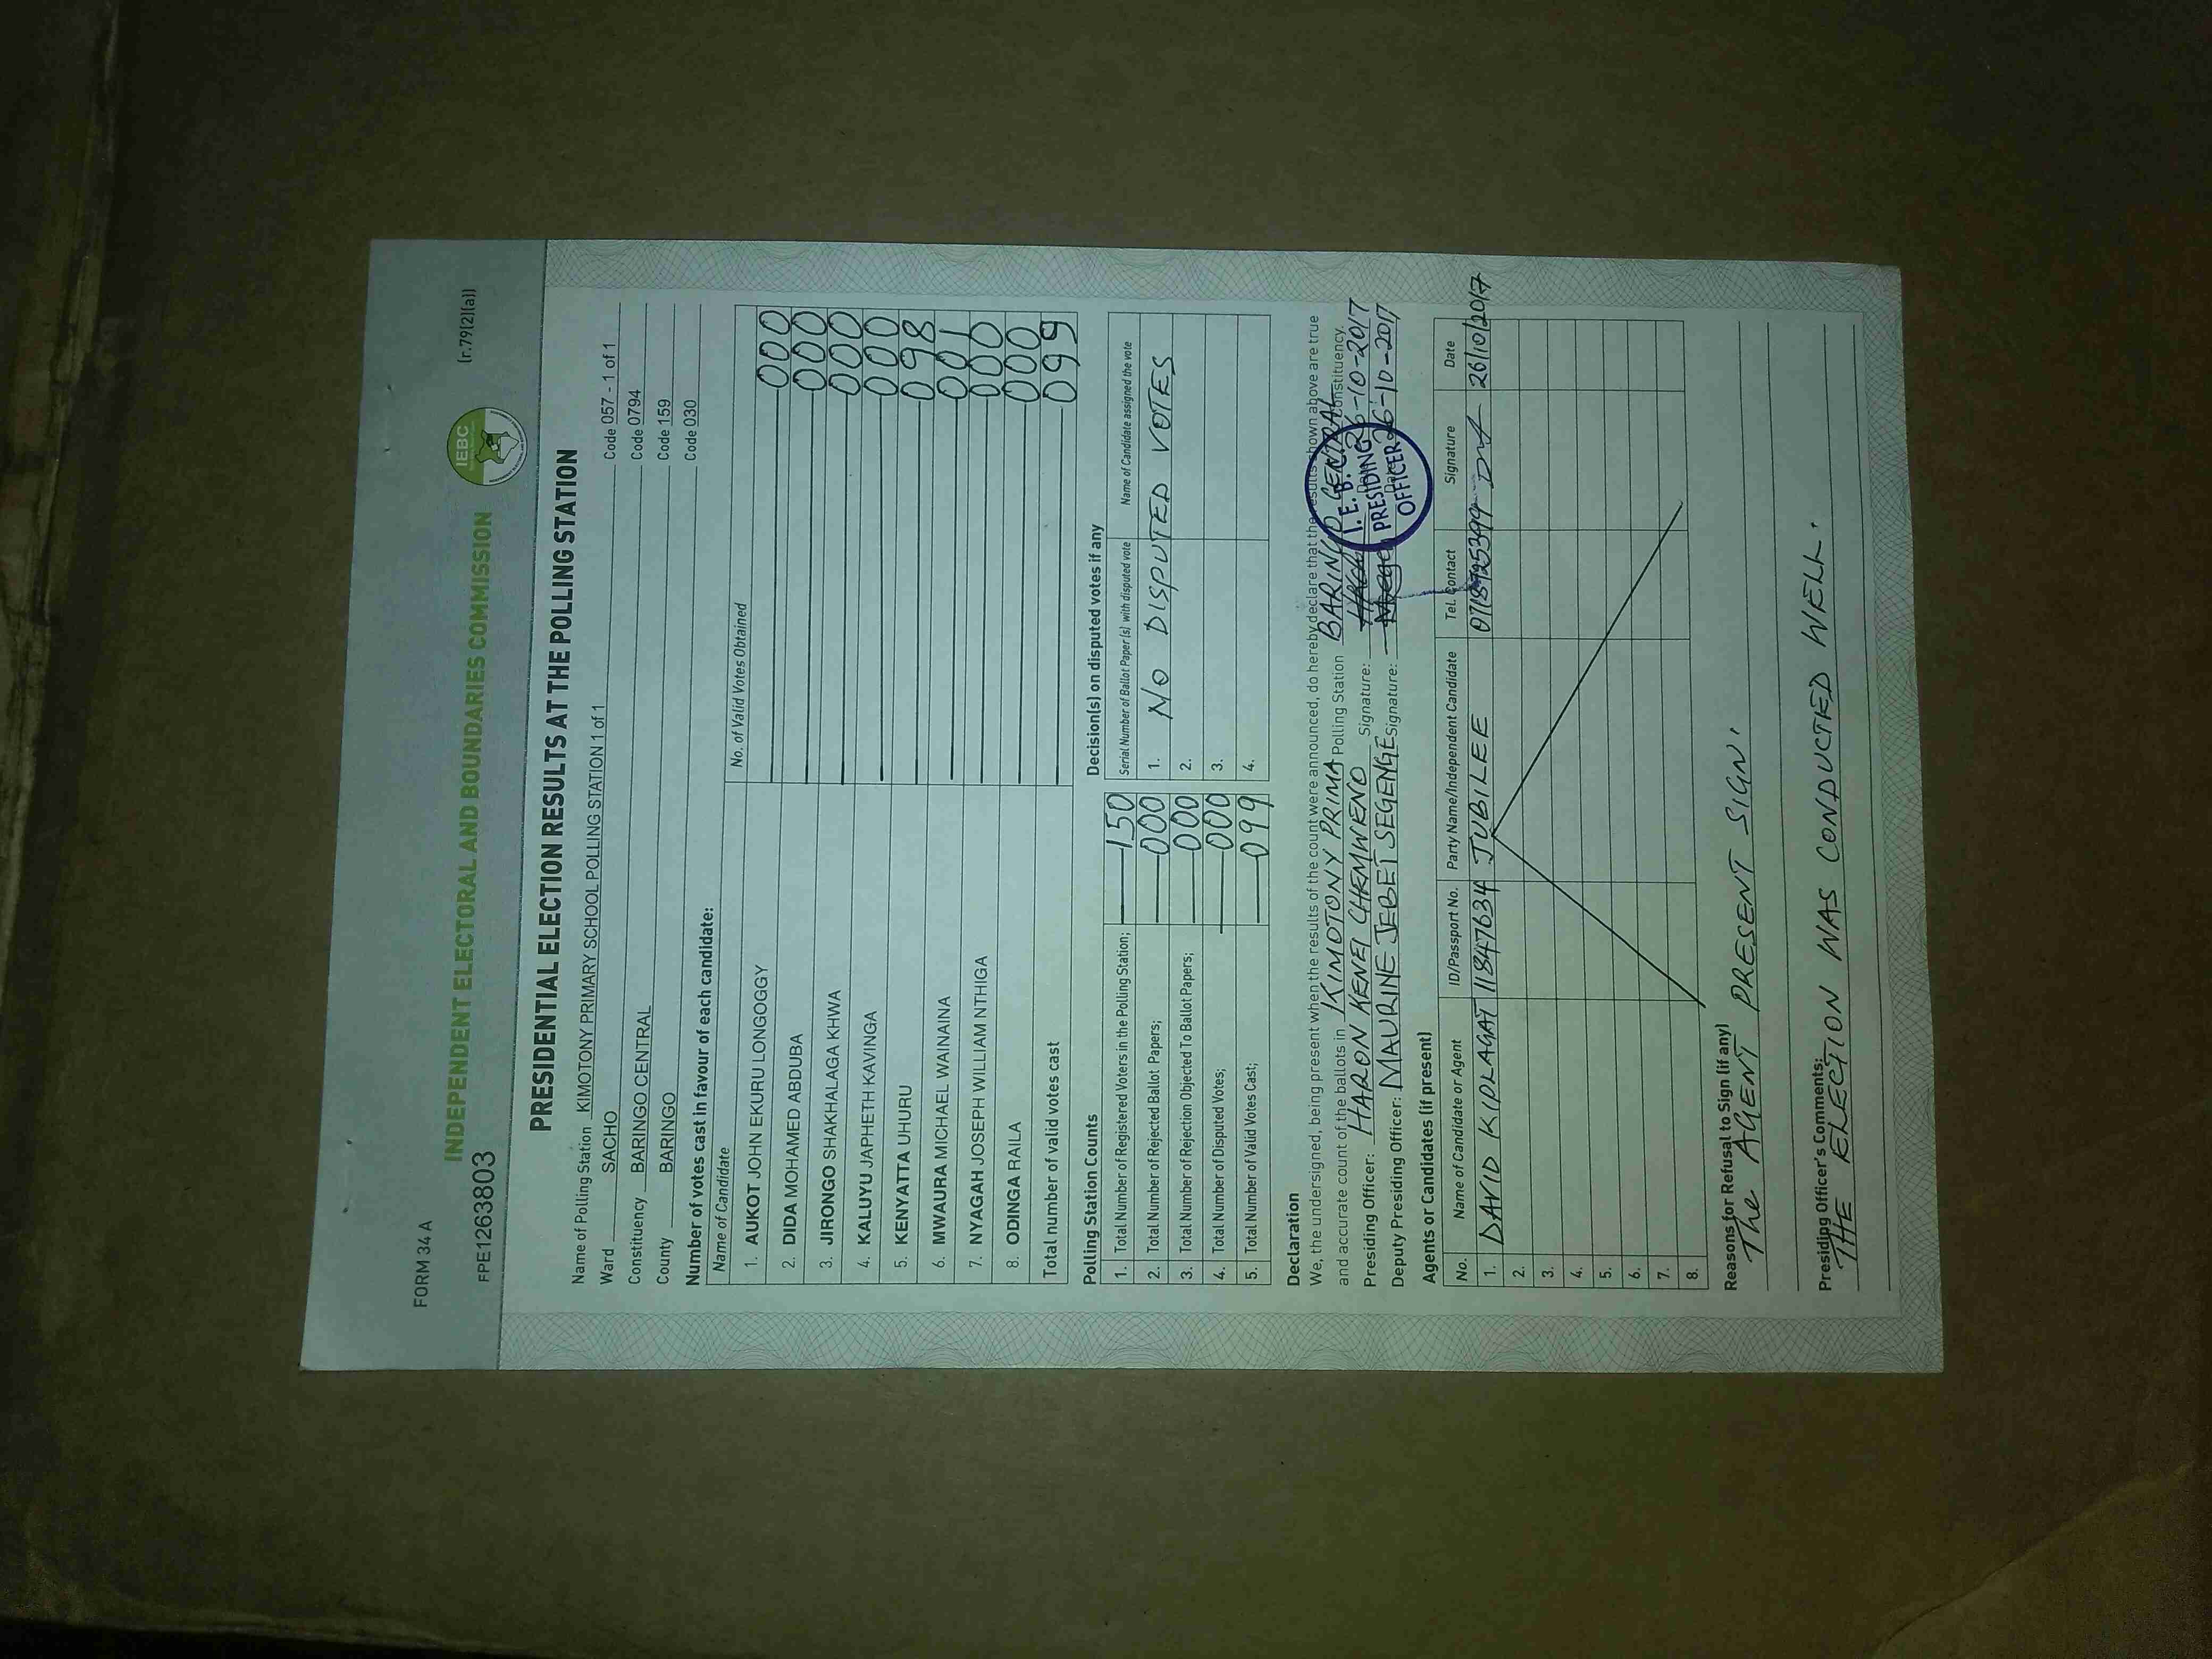 FORM 34 A
(r.79(2)(a))
INDEPENDENT ELECTORAL AND BOUNDARIES COMMISSION
IEBC
FPE1263803
PRESIDENTIAL ELECTION RESULTS AT THE POLLING STATION
Name of Polling Station KIMOTONY PRIMARY SCHOOL POLLING STATION 1 of 1 Code 057 - 1 of 1
Ward SACHO Code 0794
Constituency BARINGO CENTRAL Code 159
County BARINGO Code 030
Number of votes cast in favour of each candidate:
Name of Candidate No. of Valid Votes Obtained
1. AUKOT JOHN EKURU LONGOGGY 000
2. DIDA MOHAMED ABDUBA 000
3. JIRONGO SHAKHALAGA KHWA 000
4. KALUYU JAPHETH KAVINGA 000
5. KENYATTA UHURU 098
6. MWAURA MICHAEL WAINAINA 001
7. NYAGAH JOSEPH WILLIAM NTHIGA 000
8. ODINGA RAILA 000
Total number of valid votes cast 099
Polling Station Counts
1. Total Number of Registered Voters in the Polling Station; 150
2. Total Number of Rejected Ballot Papers; 000
3. Total Number of Rejection Objected To Ballot Papers; 000
4. Total Number of Disputed Votes; 000
5. Total Number of Valid Votes Cast; 099
Decision(s) on disputed votes if any
Serial Number of Ballot Paper(s) with disputed vote Name of Candidate assigned the vote
1. NO DISPUTED VOTES
2.
3.
4.
Declaration
We, the undersigned, being present when the results of the count were announced, do hereby declare that the results shown above are true
and accurate count of the ballots in KIMOTONY PRIMA Polling Station BARINGO CENTRAL Constituency.
Presiding Officer: HARON KENEI CHEMWENO Signature: Date 26-10-2017
Deputy Presiding Officer: MAURINE JEBET SEGENGE Signature: Date 26-10-2017
I. E. B. C.
PRESIDING
OFFICER
Agents or Candidates (if present)
No. Name of Candidate or Agent ID/Passport No. Party Name/Independent Candidate Tel. Contact Signature Date
1. DAVID KIPLAGAT 11847634 JUBILEE 26/10/2017
2.
3.
4.
5.
6.
7.
8.
Reasons for Refusal to Sign (if any)
The AGENT PRESENT SIGN.
Presiding Officer's Comments:
THE ELECTION WAS CONDUCTED WELL.